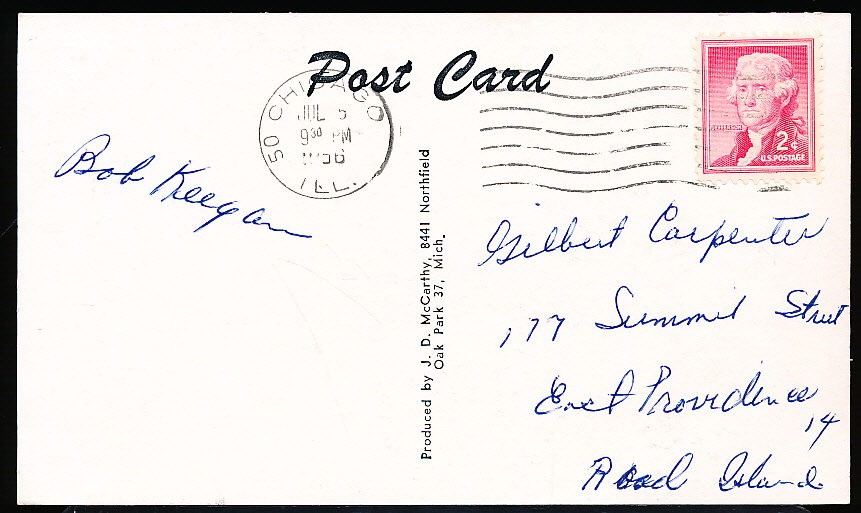 Post Card
50 CHICAGO
JUL 5
9 30 PM
1956
ILL.
JEFFERSON
2¢
U.S. POSTAGE
Bob Keegan
Produced by J. D. McCarthy, 8441 Northfield
Oak Park 37, Mich.
Gilbert Carpenter
177 Summit Street
East Providence
14
Rhode Island